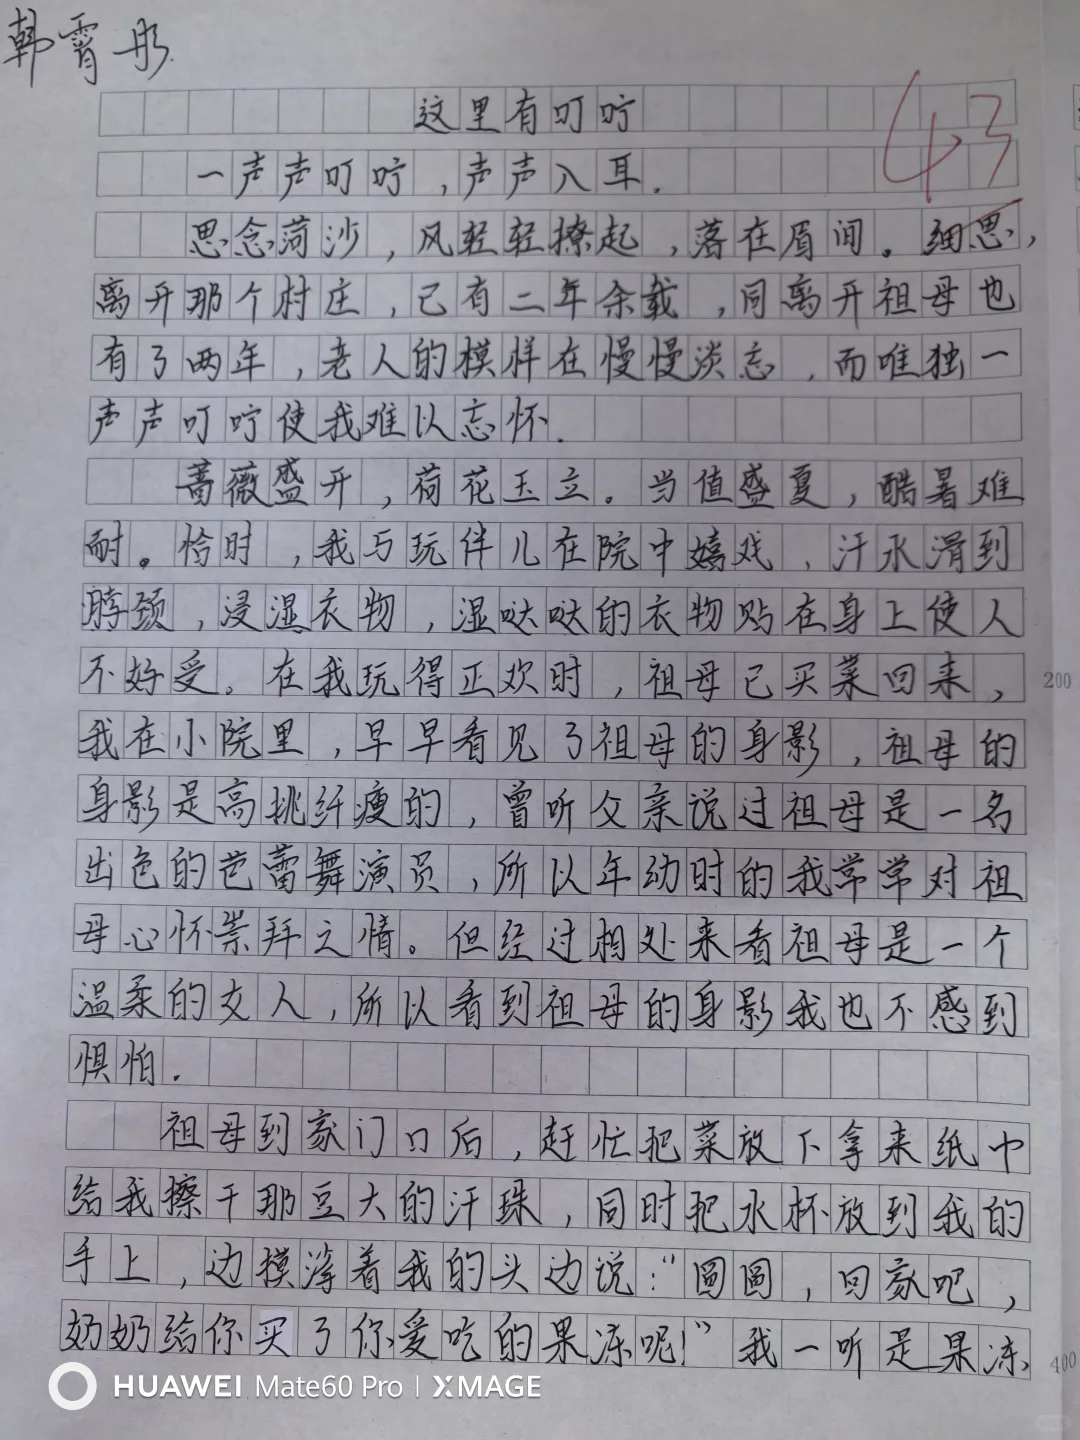 韩霄彤
43
这里有叮咛
一声声叮咛，声声入耳．
思念荷沙，风轻轻撩起，落在眉间。细思，
离开那个村庄，已有二年余载，同离开祖母也
有了两年，老人的模样在慢慢淡忘，而唯独一
声声叮咛使我难以忘怀．
蔷薇盛开，荷花玉立。当值盛夏，酷暑难
耐。恰时，我与玩伴儿在院中嬉戏，汗水滑到
脖颈，浸湿衣物，湿哒哒的衣物贴在身上使人
不好受。在我玩得正欢时，祖母已买菜回来，
我在小院里，早早看见了祖母的身影，祖母的
身影是高挑纤瘦的，曾听父亲说过祖母是一名
出色的芭蕾舞演员，所以年幼时的我常常对祖
母心怀崇拜之情。但经过相处来看祖母是一个
温柔的女人，所以看到祖母的身影我也不感到
惧怕．
祖母到家门口后，赶忙把菜放下拿来纸巾
给我擦干那豆大的汗珠，同时把水杯放到我的
手上，边摸着我的头边说：“圆圆，回家吧，
200
奶奶给你买了你爱吃的果冻呢！”我一听是果冻，
400
HUAWEI Mate60 Pro | XMAGE